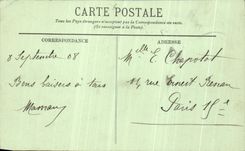 CARTE POSTALE
Tous les Pays étrangers n'acceptent pas la Correspondance au recto.
(Se renseigner à la Poste)
CORRESPONDANCE
ADRESSE
8 Septembre 08
Bons baisers à tous
Maman
Mlle E. Chapotot
rue Ernest Renan
Paris 15e